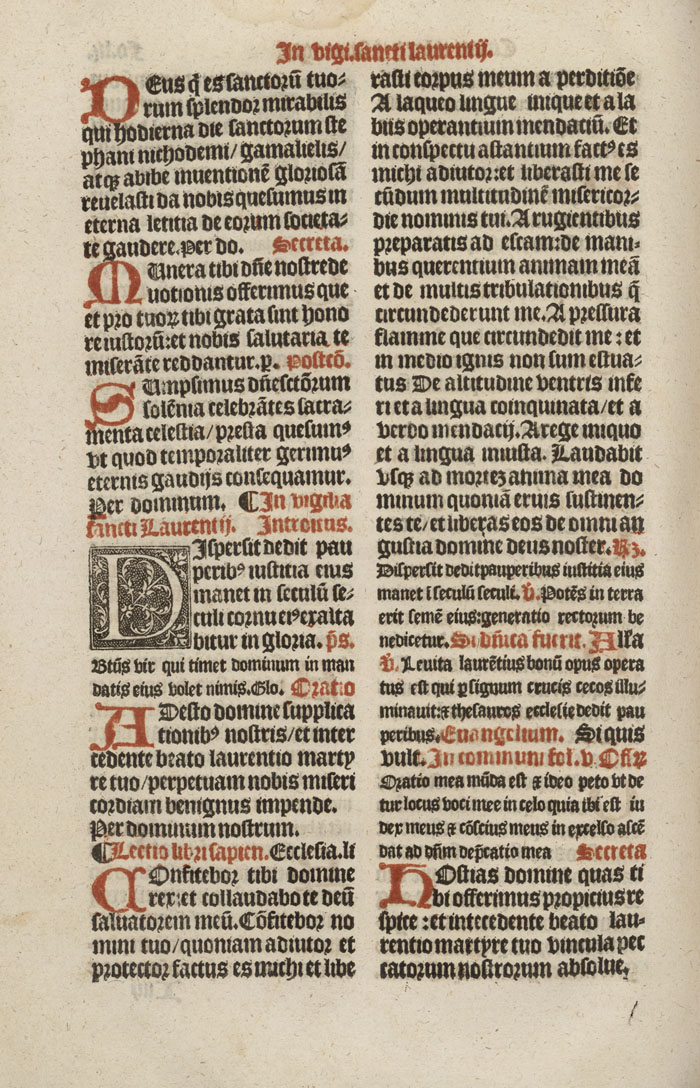 In vigi.sancti laurentij.
DEus q̄ es sanctorū tuo⸗
rum splendor mirabilis
qui hodierna die sanctorum ste
phani nichodemi/ gamalielis/
atqꝫ abibe inuentionē gloriosā
reuelasti da nobis quesumus in
eterna letitia de eorum societa⸗
te gaudere.Per do. Secreta.
MUnera tibi dn̄e nostre de
uotionis offerimus que
et pro tuoꝝ tibi grata sint hono
re iustorū:et nobis salutaria te
miserāte reddantur.p. Postcō.
SUmpsimus dn̄e sctōrum
solēnia celebrātes sacra⸗
menta celestia/presta quesumꝰ
vt quod temporaliter gerimꝰ
eternis gaudijs consequamur.
Per dominum. ¶In vigilia
sancti Laurentij. Introitus.
DIspersit dedit pau
peribꝰ iustitia eius
manet in seculū se⸗
culi cornu eiꝰ exalta
bitur in gloria. p̄s.
Btūs vir qui timet dominum in man
datis eius volet nimis.Glo. Oratio
ADesto domine supplica
tionibꝰ nostris/et inter
cedente beato laurentio marty
re tuo/perpetuam nobis miseri
cordiam benignus impende.
Per dominum nostrum.
¶Lectio libri sapien. Ecclesia.li
COnfitebor tibi domine
rex:et collaudabo te deū
saluatorem meū.Cōfitebor no
mini tuo/quoniam adiutor et
protector factus es michi et libe
rasti corpus meum a perditiōe
A laqueo lingue inique et a la
biis operantium mendaciū. Et
in conspectu astantium factꝰ es
michi adiutor:et liberasti me se
cūdum multitudinē misericor⸗
die nominis tui.A rugientibus
preparatis ad escam:de mani⸗
bus querentium animam meā
et de multis tribulationibus q̄
circundederunt me.A pressura
flamme que circundedit me : et
in medio ignis non sum estua⸗
tus De altitudine ventris infe
ri et a lingua coinquinata/et a
verbo mendacij.A rege iniquo
et a lingua iniusta. Laudabit
vsqꝫ ad morteꝫ anima mea do
minum quoniā eruis sustinen⸗
tes te/et liberas eos de omni an
gustia domine deus noster.Rꝫ.
Dispersit dedit pauperibus iustitia eius
manet ī seculū seculi. v̄. Potēs in terra
erit semē eius:generatio rectorum be
nedicetur. Si dn̄ica fuerit. Alla
v̄. Leuita laurētius bonū opus opera
tus est qui p̲ signum crucis cecos illu⸗
minauit:⁊ thesauros ecclesie dedit pau
peribus.Euangelium. Si quis
vult. In communi fol.v Offꝝ
Oratio mea mūda est ⁊ ideo peto vt de
tur locus voci mee in celo quia ibi est iu
dex meus ⁊ cōscius meus in excelso ascē
dat ad dn̄m dep̄catio mea Secreta
HOstias domine quas ti
bi offerimus propicius re
spice :et intecedente beato lau⸗
rentio martyre tuo vincula pec
catorum nostrorum absolue.